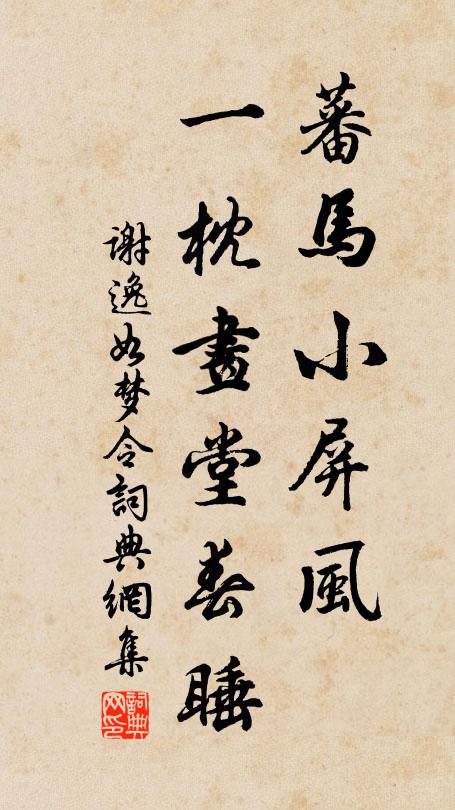 蕃馬小屏風
一枕畫堂春睡
謝逸如梦令詞典網集
詞典网印